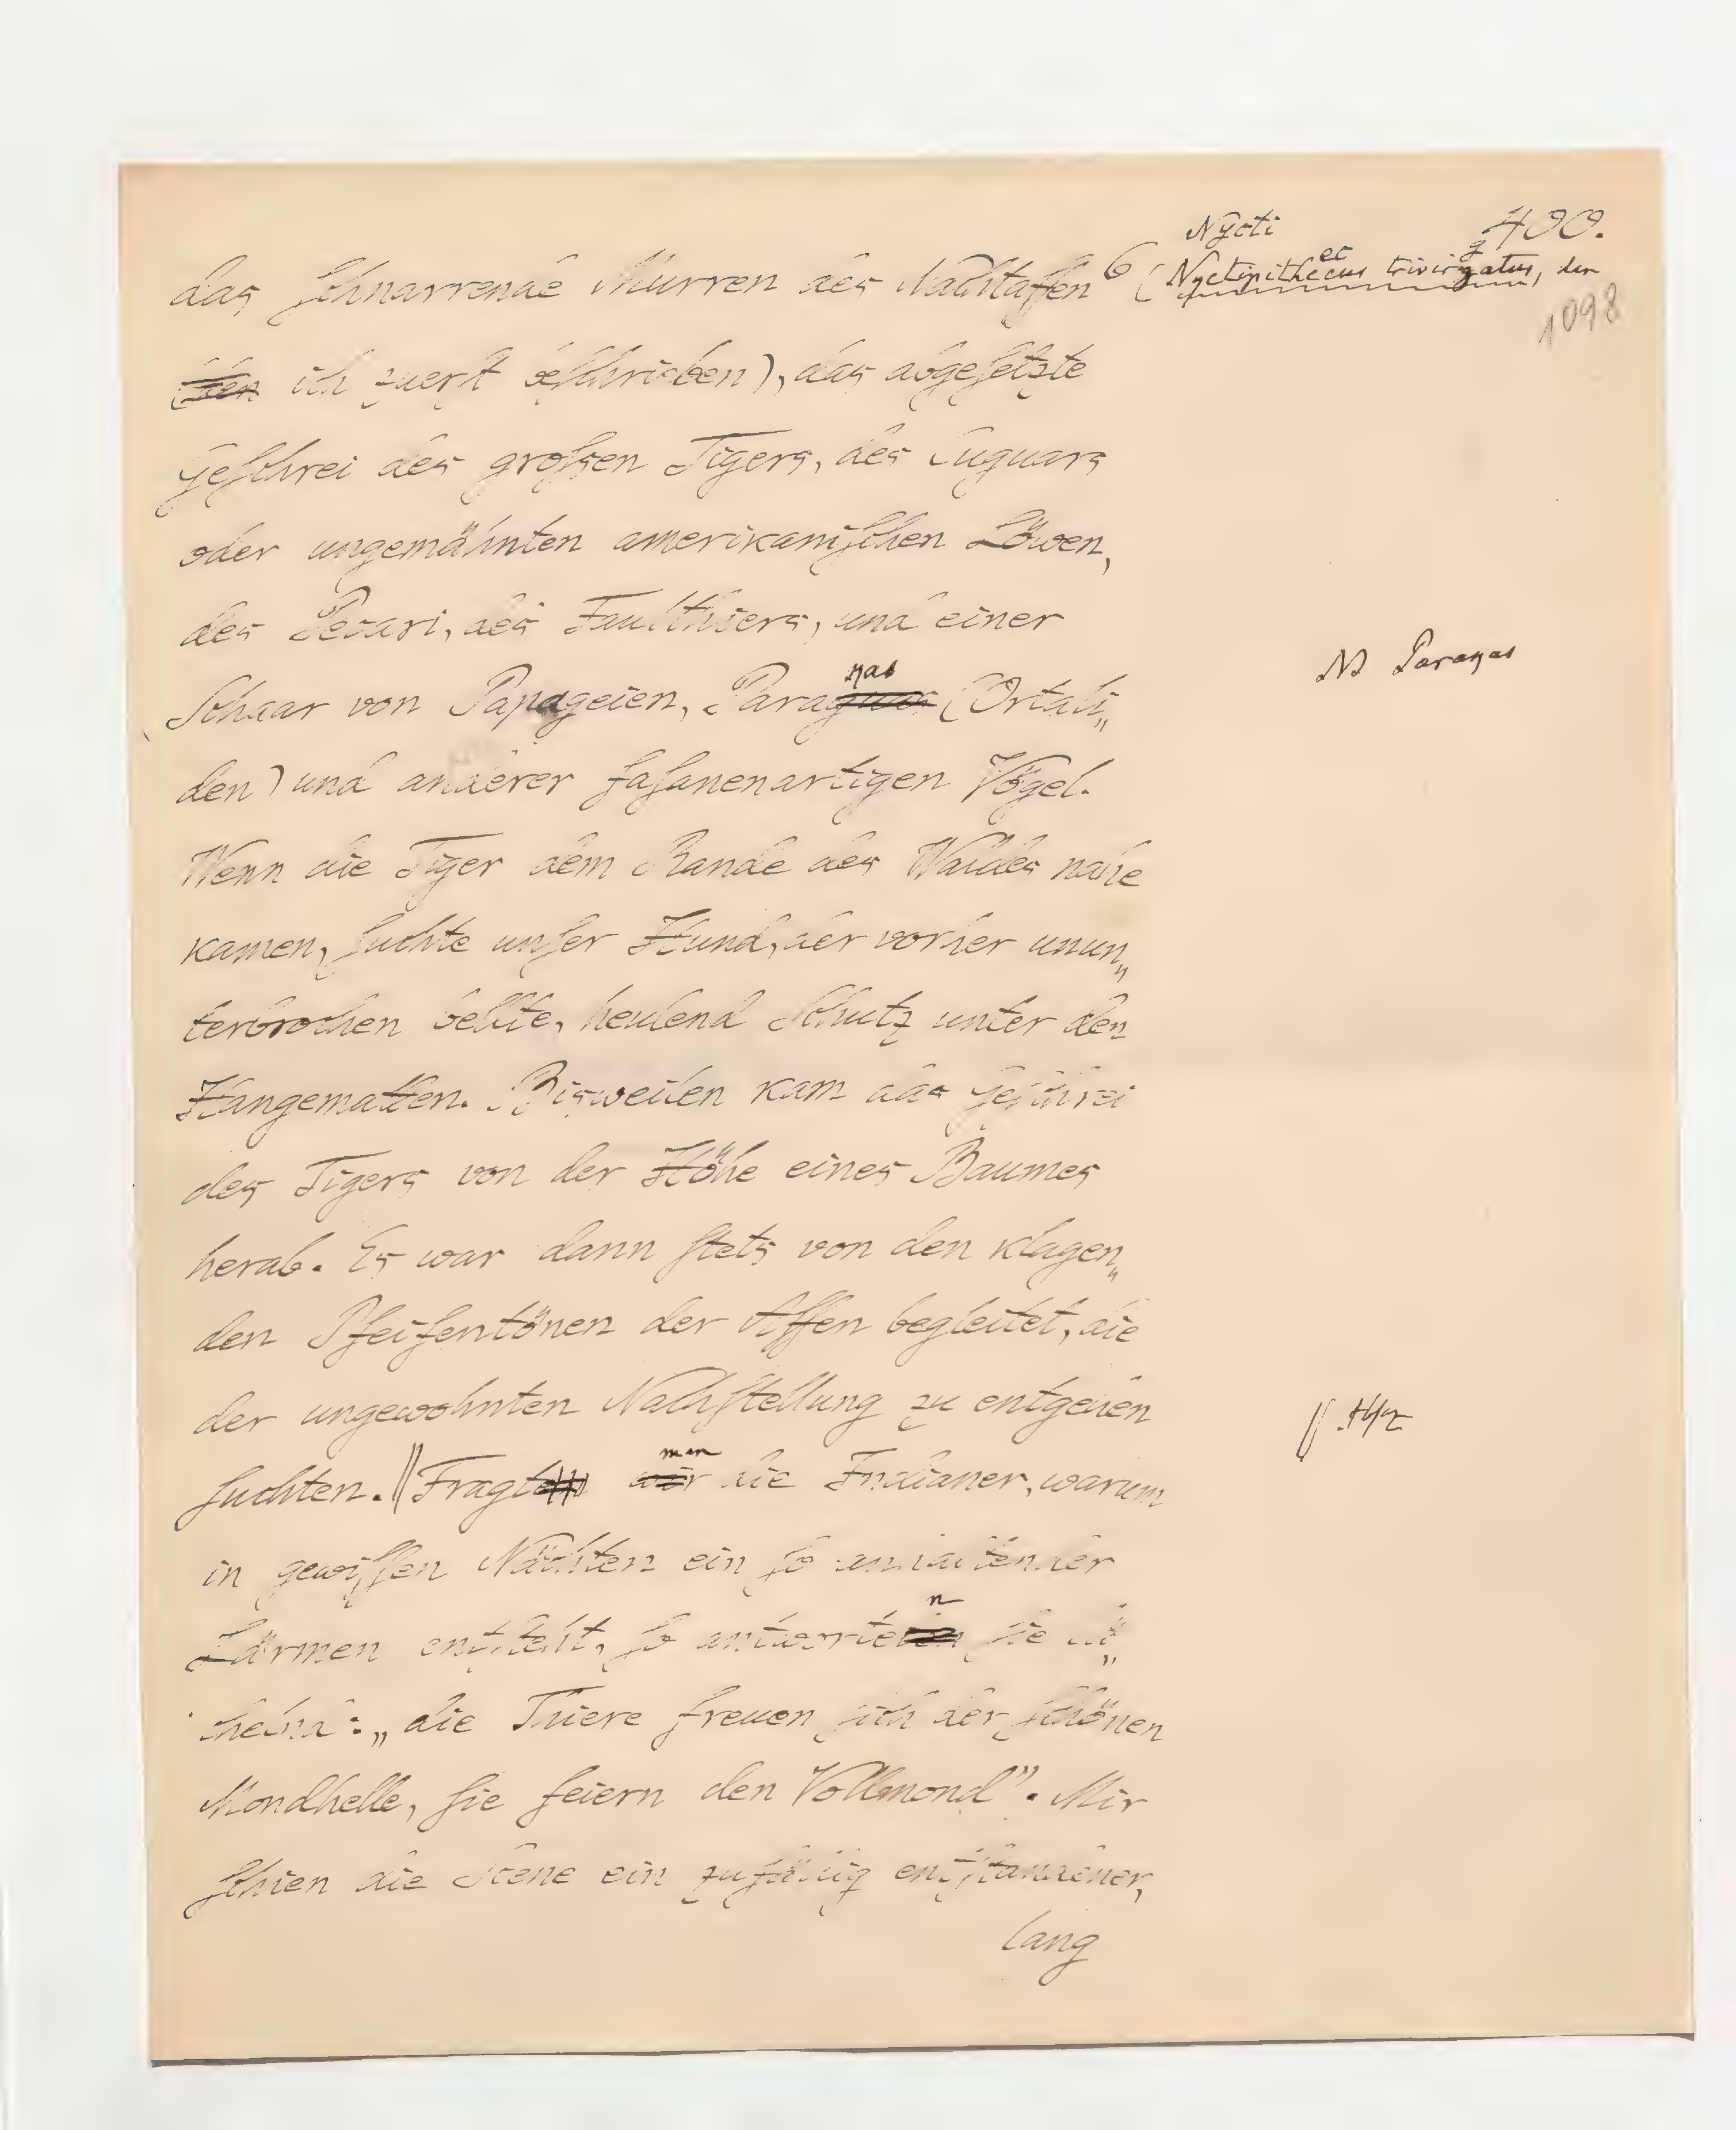 Nycti 400.
das schnarrende Murren des Nachtaffen 6 (Nyctipithecus trivirgatus, den
ec g
1098
den ich zuerst beschrieben), das abgesetzte
Geschrei des großen Tigers, des Cuguars
oder ungemähnten amerikanischen Löwen,
des Pecari, des Faulthiers, und einer
Schaar von Papageien, Paraguas (Ortali„
nas
N Paranas
den) und anderer fasanenartigen Vögel.
Wenn die Tiger dem Rande des Waldes nahe
kamen, suchte unser Hund, der vorher unun„
terbrochen bellte, heulend Schutz unter den
Hangematten. Bisweilen kam das Geschrei
des Tigers von der Höhe eines Baumes
herab. Es war dann stets von den klagen„
den Pfeifentönen der Affen begleitet, die
der ungewohnten Nachstellung zu entgehen
suchten. || Fragten wir die Indianer, warum
man
in gewissen Nächten ein so anhaltender
Lärmen entsteht, so antworteten sie lä„
n
chelnd: „die Thiere freuen sich der schönen
Mondhelle, sie feiern den Vollmond”. Mir
schien die Scene ein zufällig entstandener,
lang